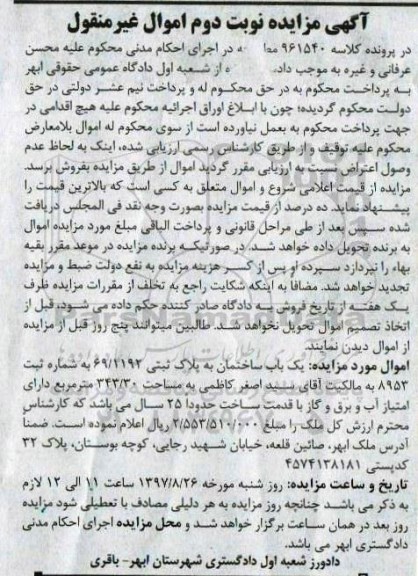 آگهی مزایده نوبت دوم اموال غیرمنقول
در پرونده کلاسه ۹۶۱۵۴۰ در اجرای احکام مدنی محکوم علیه محسن
عرفانی و غیره به موجب از شعبه اول دادگاه عمومی حقوقی ابهر
به پرداخت محکوم به در حق محکوم له و پرداخت نیم عشر دولتی در حق
دولت محکوم گردیده؛ چون با ابلاغ اوراق اجرائیه محکوم علیه هیچ اقدامی در
جهت پرداخت محکوم به بعمل نیاورده است از سوی محکوم له اموال بلامعارض
محکوم علیه توقیف و از طریق کارشناس رسمی ارزیابی شده، اینک به لحاظ عدم
وصول اعتراض نسبت به ارزیابی مقرر گردید اموال از طریق مزایده بفروش برسد.
مزایده از قیمت اعلامی شروع و اموال متعلق به کسی است که بالاترین قیمت را
پیشنهاد نماید. ده درصد از قیمت مزایده بصورت وجه نقد فی المجلس دریافت
شده سپس بعد از طی مراحل قانونی و پرداخت الباقی مبلغ مورد مزایده اموال
به برنده تحویل داده خواهد شد. در صورتیکه برنده مزایده در موعد مقرر بقیه
بهاء را نپردازد سپرده او پس از کسر هزینه مزایده به نفع دولت ضبط و مزایده
تجدید خواهد شد. مضافا به اینکه شکایت راجع به تخلف از مقررات مزایده ظرف
یک هفته از تاریخ فروش به دادگاه صادر کننده حکم داده می شود، قبل از
اتخاذ تصمیم اموال تحویل نخواهد شد. طالبین میتوانند پنج روز قبل از مزایده
از اموال دیدن نمایند.
اموال مورد مزایده: یک باب ساختمان به پلاک ثبتی ۶۹/۱۱۹۲ به شماره ثبت
۸۹۵۲ به مالکیت آقای سیید اصغر کاظمی به مساحت ۳۴۳/۳۰ مترمربع دارای
امتیاز آب و برق و گاز با قدمت ساخت حدودا ۲۵ سال می باشد که کارشناس
محترم ارزش کل ملک را مبلغ ۲/۵۵۳/۵۱۰/۰۰۰ ریال اعلام نموده است. ضمناً
آدرس ملک ابهر، صائین قلعه، خیابان شهید رجایی، کوچه بوستان، پلاک ۳۲
کدپستی ۴۵۷۴۱۳۸۱۸۱
تاریخ و ساعت مزایده: روز شنبه مورخه ۱۳۹۷/۸/۲۶ ساعت ۱۱ الی ۱۲ لازم
به ذکر می باشد چنانجه روز مزایده به هر دلیلی مصادف با تعطیلی شود مزایده
روز بعد در همان ساعت برگزار خواهد شد و محل مزایده اجرای احکام مدنی
دادگستری ابهر می باشد.
دادورز شعبه اول دادگستری شهرستان ابهر- باقری